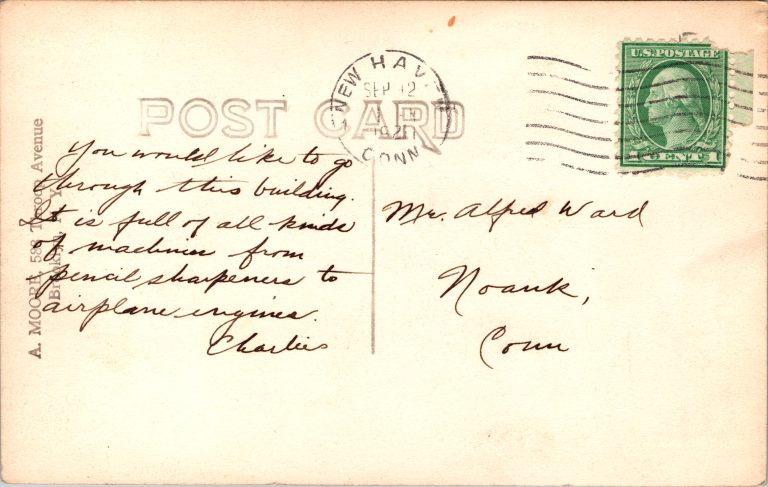 POST CARD
NEW HAVEN
SEP 12
CONN
U.S. POSTAGE
1 CENT 1
You would like to go
through this building.
It is full of all kinds
of machines from
pencil sharpeners to
airplane engines.
Charlie
Mr. Alfred Ward
Noank,
Conn
A. MOORE, Avenue
Brooklyn, N. Y.